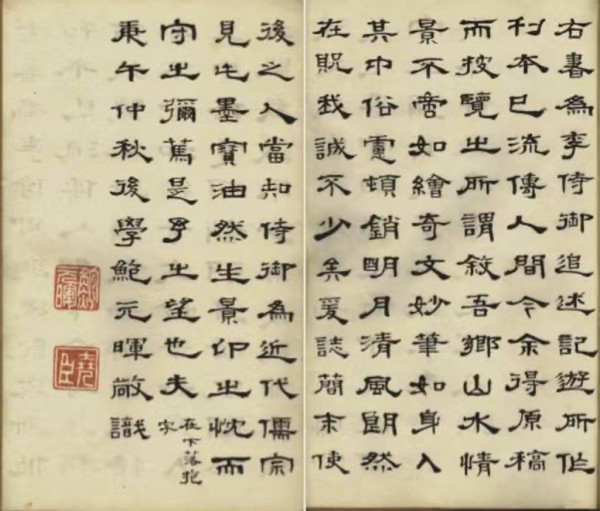 右書為李侍御追述記遊所作
刊本已流傳人間今余得原稿
而披覽之所謂敘吾鄉山水情
景不啻如繪奇文妙筆如身入
其中俗慮頓銷明月清風朗然
在貺我誠不少矣爰誌簡末使
後之人當知侍御為近代儒宗
見此墨寶油然生景仰之忱而
守之彌篤是予之望也夫
在下落抱
字
庚午仲秋後學鮑元暉敬識
鮑元暉
堯臣